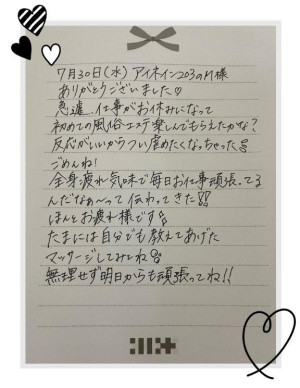 7月30日(水) アイネイン203のM様
ありがとうございました♡
急遽、仕事がお休みになって
初めての風俗エステ楽しんでもらえたかな？
反応がいいからつい虐めたくなっちゃった
ごめんね！
全身疲れ気味で毎日お仕事頑張ってる
んだなぁ～って伝わってきた!!
ほんとお疲れ様です
たまには自分でも教えてあげた
マッサージしてみてね
無理せず明日からも頑張ってね!!